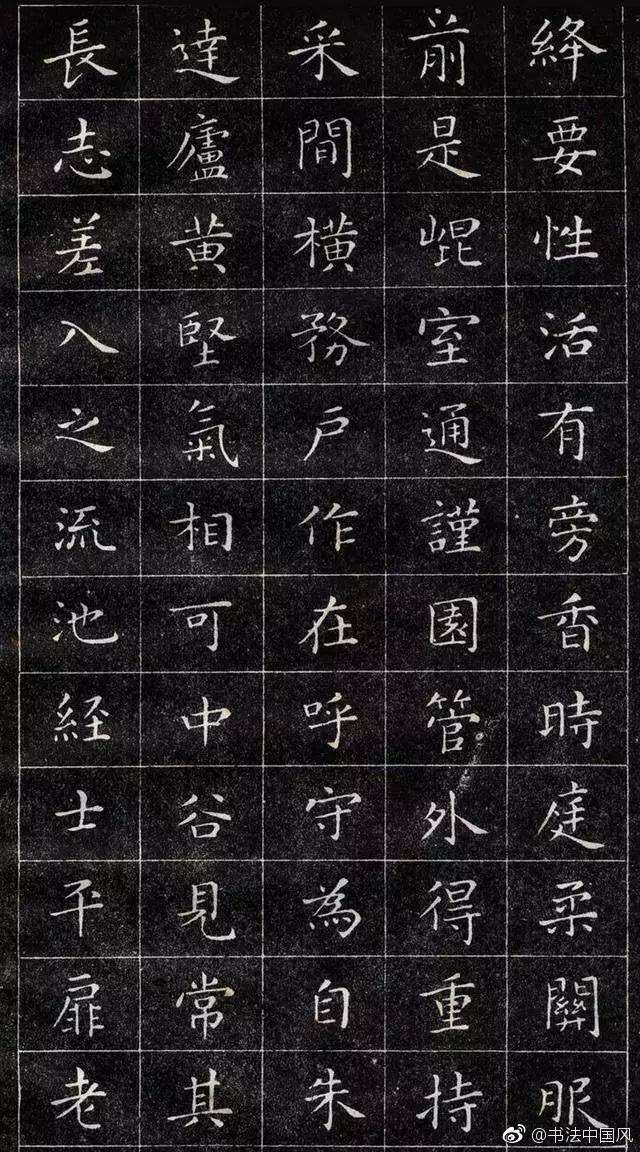 絳要性活有旁香時庭柔關服
前是崐室通謹園管外得重持
采間橫務戶作在呼守為自朱
達廬黃堅氣相可中谷見常其
長志差入之流池經士平扉老
@书法中国风